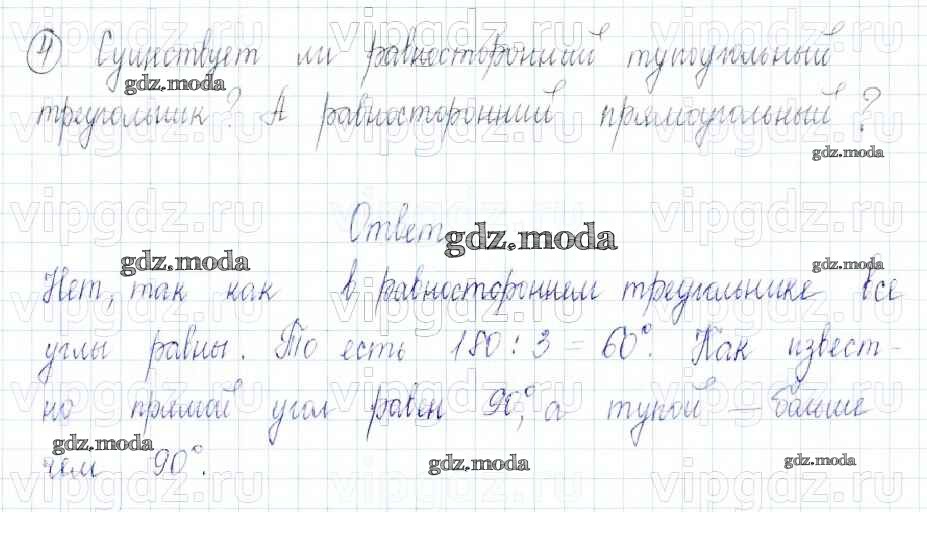 4 Существует ли равносторонний тупоугольный
треугольник? А равносторонний прямоугольный?
Ответ
Нет, так как в равностороннем треугольнике все
углы равны. То есть 180 : 3 = 60°. Как извест-
но прямой угол равен 90°, а тупой — больше
чем 90°.
vipgdz.ru
gdz.moda